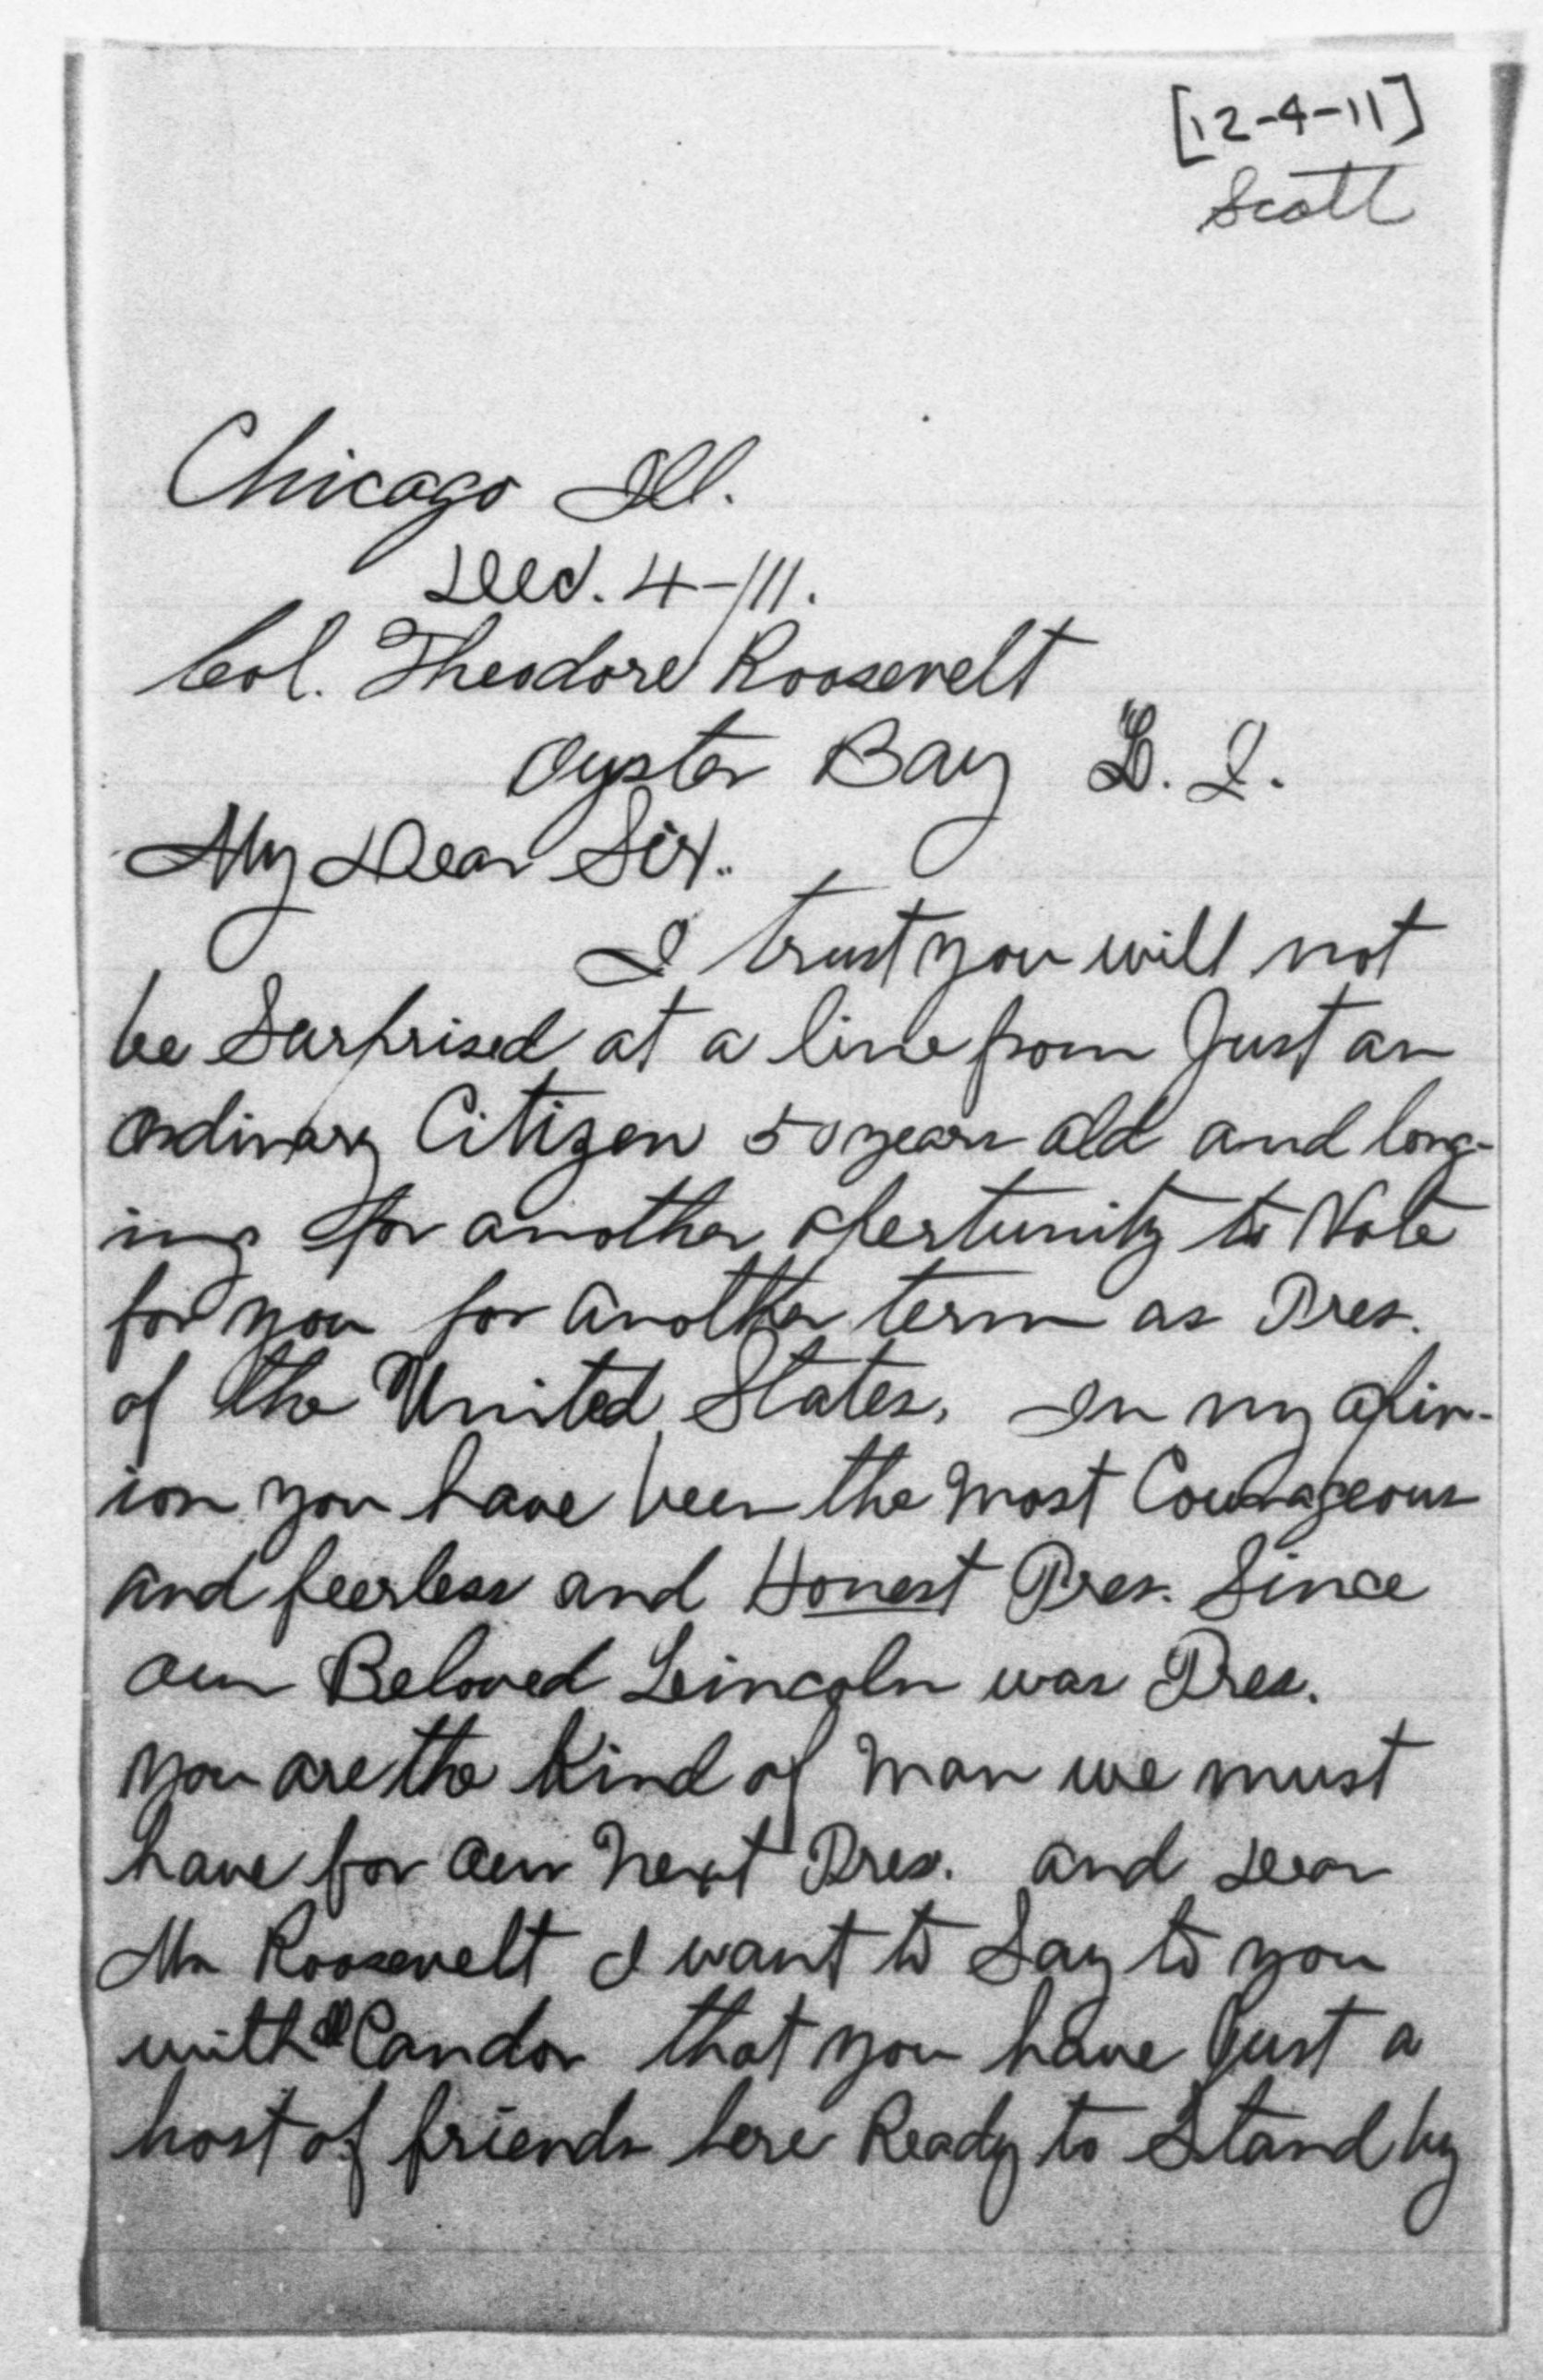 [12-4-11]
Scott
Chicago Ill.
Dec. 4-/11.
Col. Theodore Roosevelt
Oyster Bay L. I.
My Dear Sir..
I trust you will not
be Surprised at a line from Just an
ordinary Citizen 50 years old and long-
ing for another opertunity to Vote
for you for another term as Pres.
of the United States. In my opin-
ion you have been the most Courageous
and feerless and Honest Pres. Since
our Beloved Leincoln was Pres.
you are the Kind of man we must
have for our next Pres. and Dear
Mr Roosevelt I want to Say to you
with all Candor that you have Just a
host of friends here Ready to Stand by